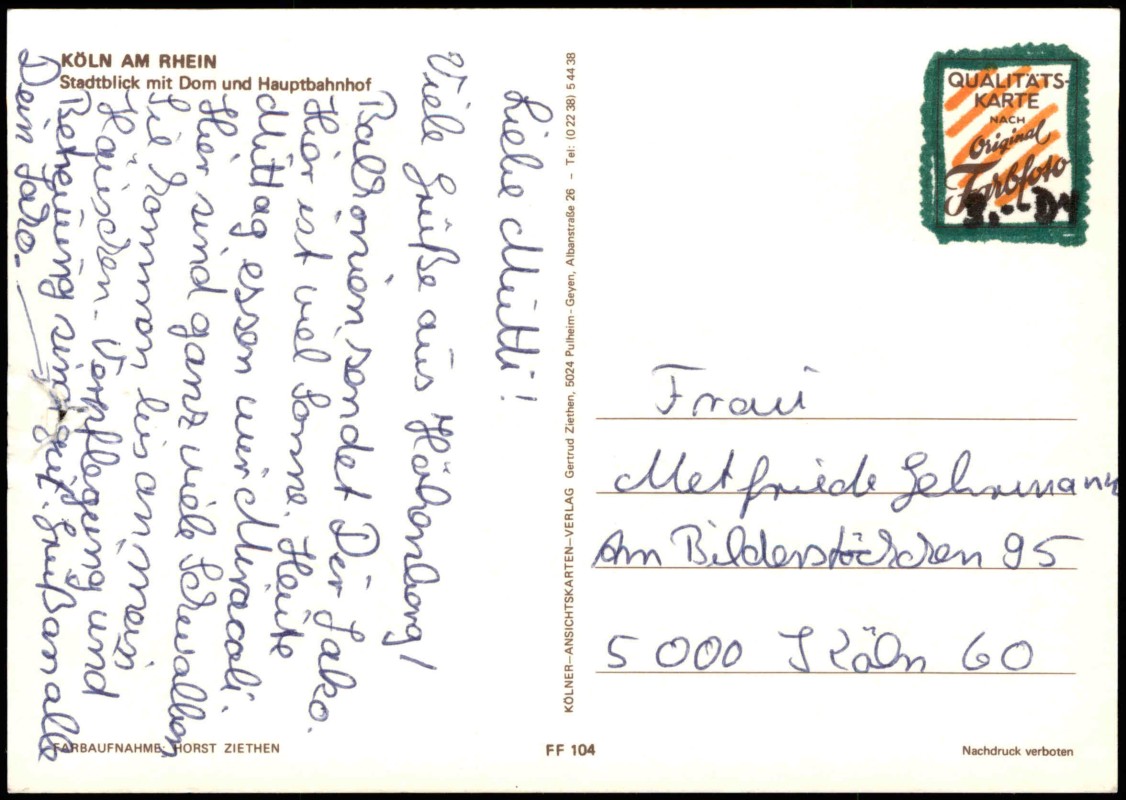 KÖLN AM RHEIN
Stadtblick mit Dom und Hauptbahnhof
Liebe Mutti!
Viele Grüße aus Höhenberg/
Balkonien, sendet Dir Jako.
Hier ist viel Sonne. Heute
Mittag essen wir Miracoli.
Hier sind ganz viele Schwalben,
sie kommen bis an mein
Häuschen. Verpflegung und
Betreuung sind gut. Grüß an alle
Dein Jako.
KÖLNER-ANSICHTSKARTEN-VERLAG Gertrud Ziethen, 5024 Pulheim-Geyen, Albanstraße 26 - Tel: (0 22 38) 5 44 38
QUALITÄTS-
KARTE
NACH
Original
Farbfoto
3.-- DM
Frau
Metfriede Gehrmann
Am Bilderstöckchen 95
5000 Köln 60
FARBAUFNAHME: HORST ZIETHEN
FF 104
Nachdruck verboten